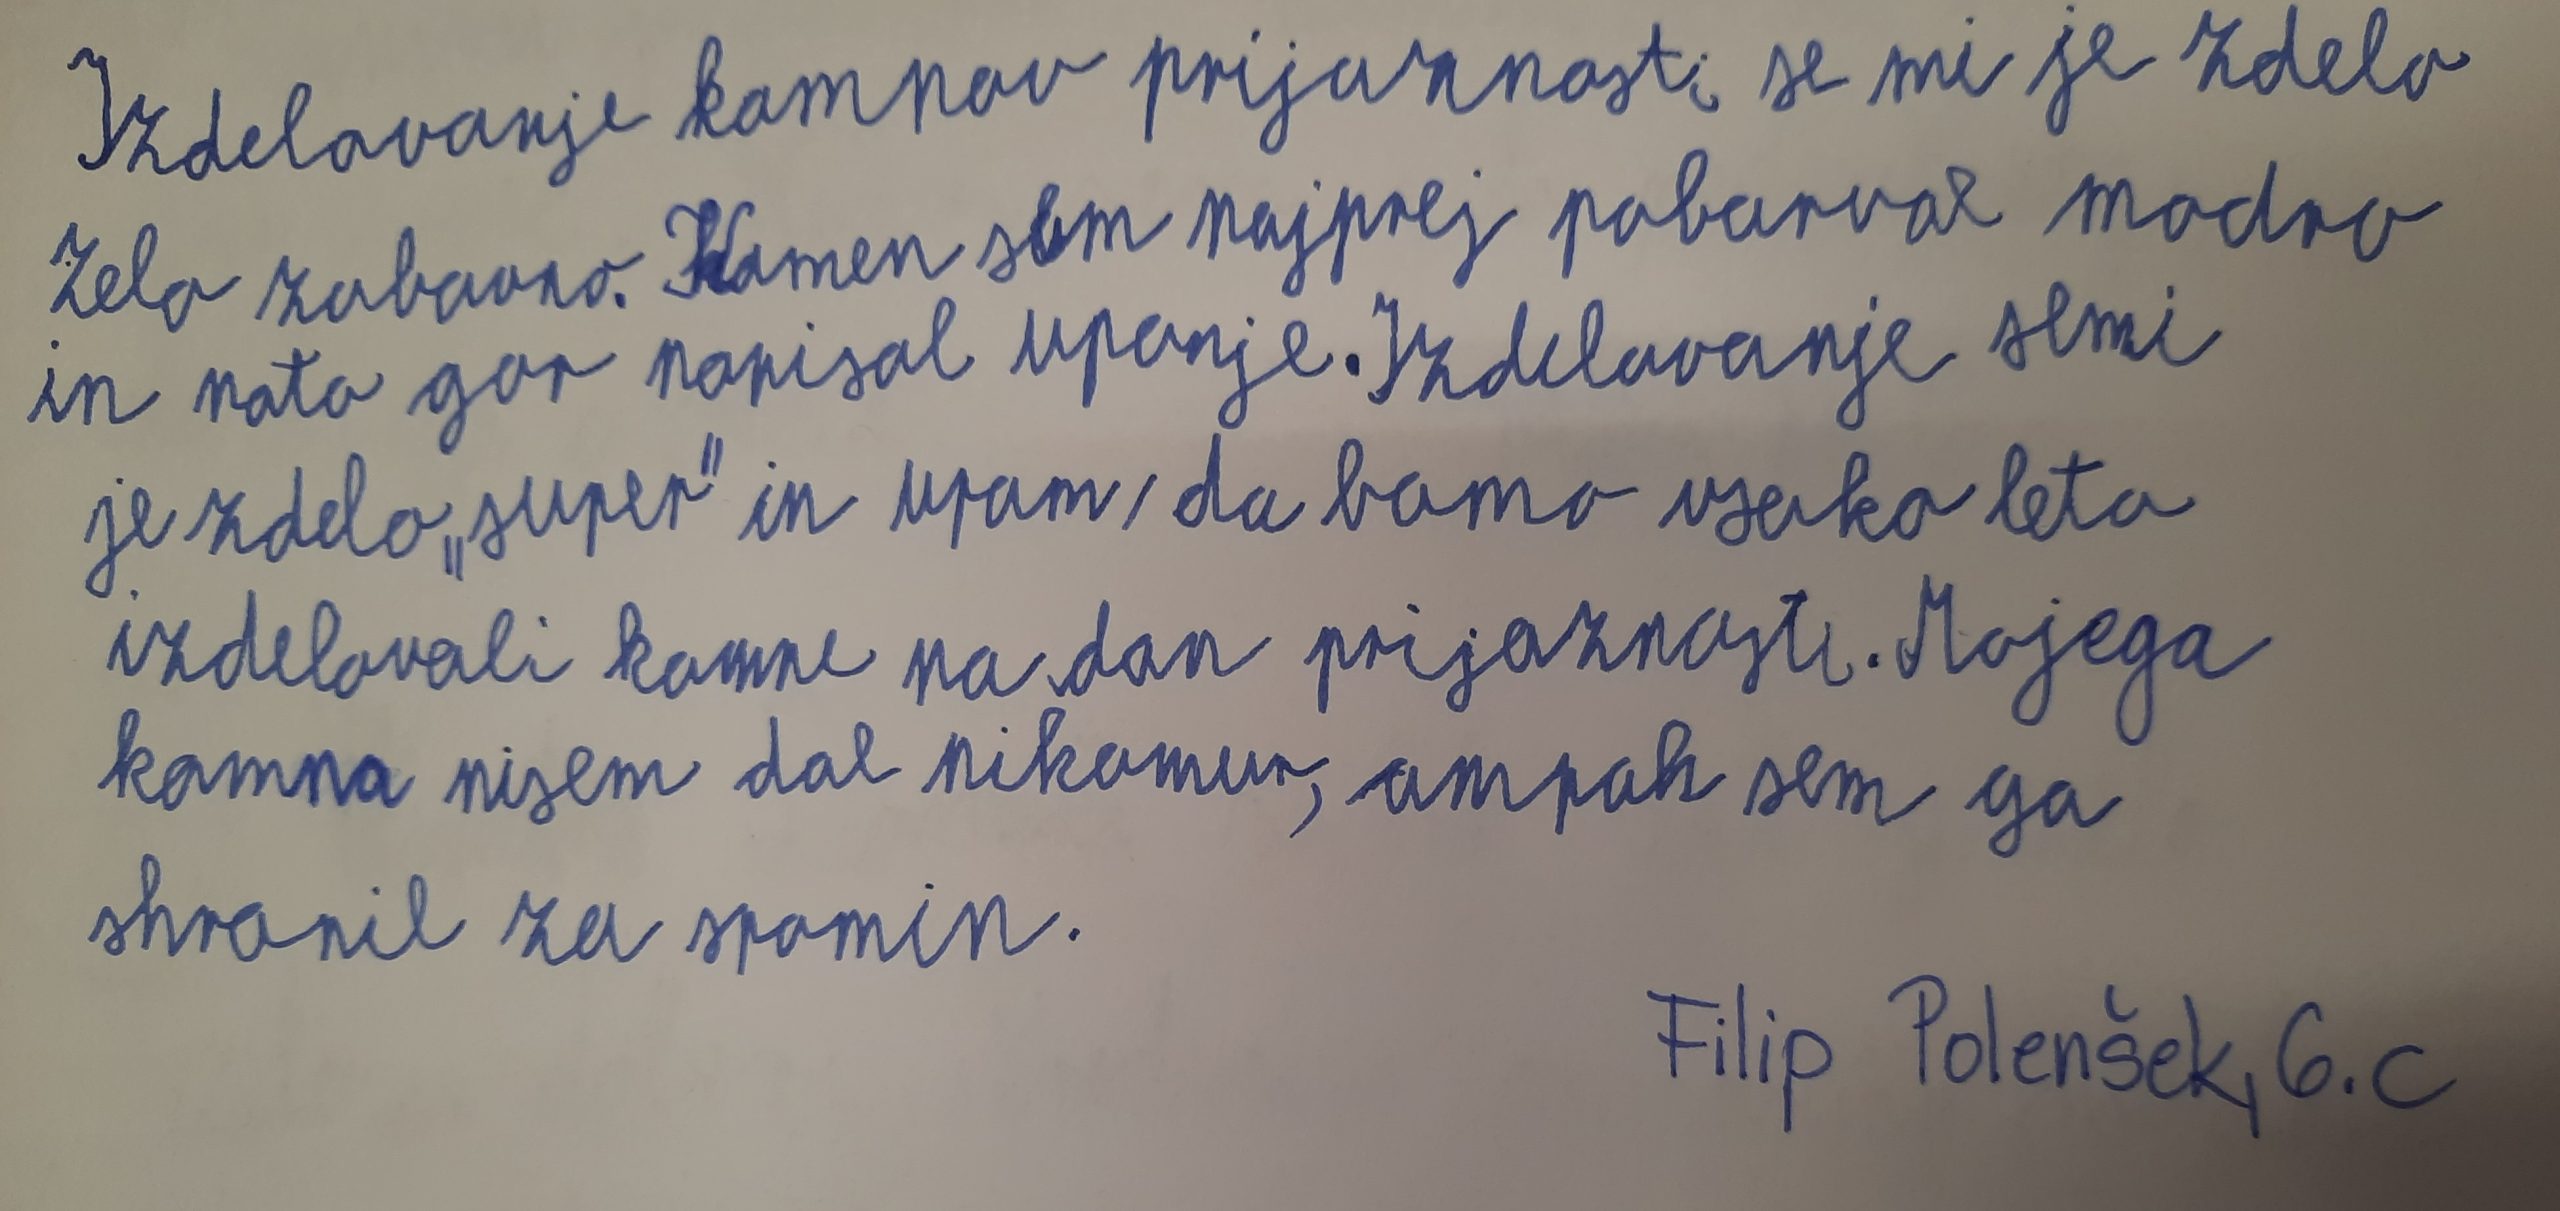 Izdelovanje kamnov prijaznosti se mi je zdelo
zelo zabavno. Kamen sem najprej pobarval modro
in nato gor napisal upanje. Izdelovanje se mi
je zdelo „super" in upam, da bomo vsako leto
izdelovali kamne na dan prijaznosti. Mojega
kamna nisem dal nikomur, ampak sem ga
shranil za spomin.
Filip Polenšek, 6. c